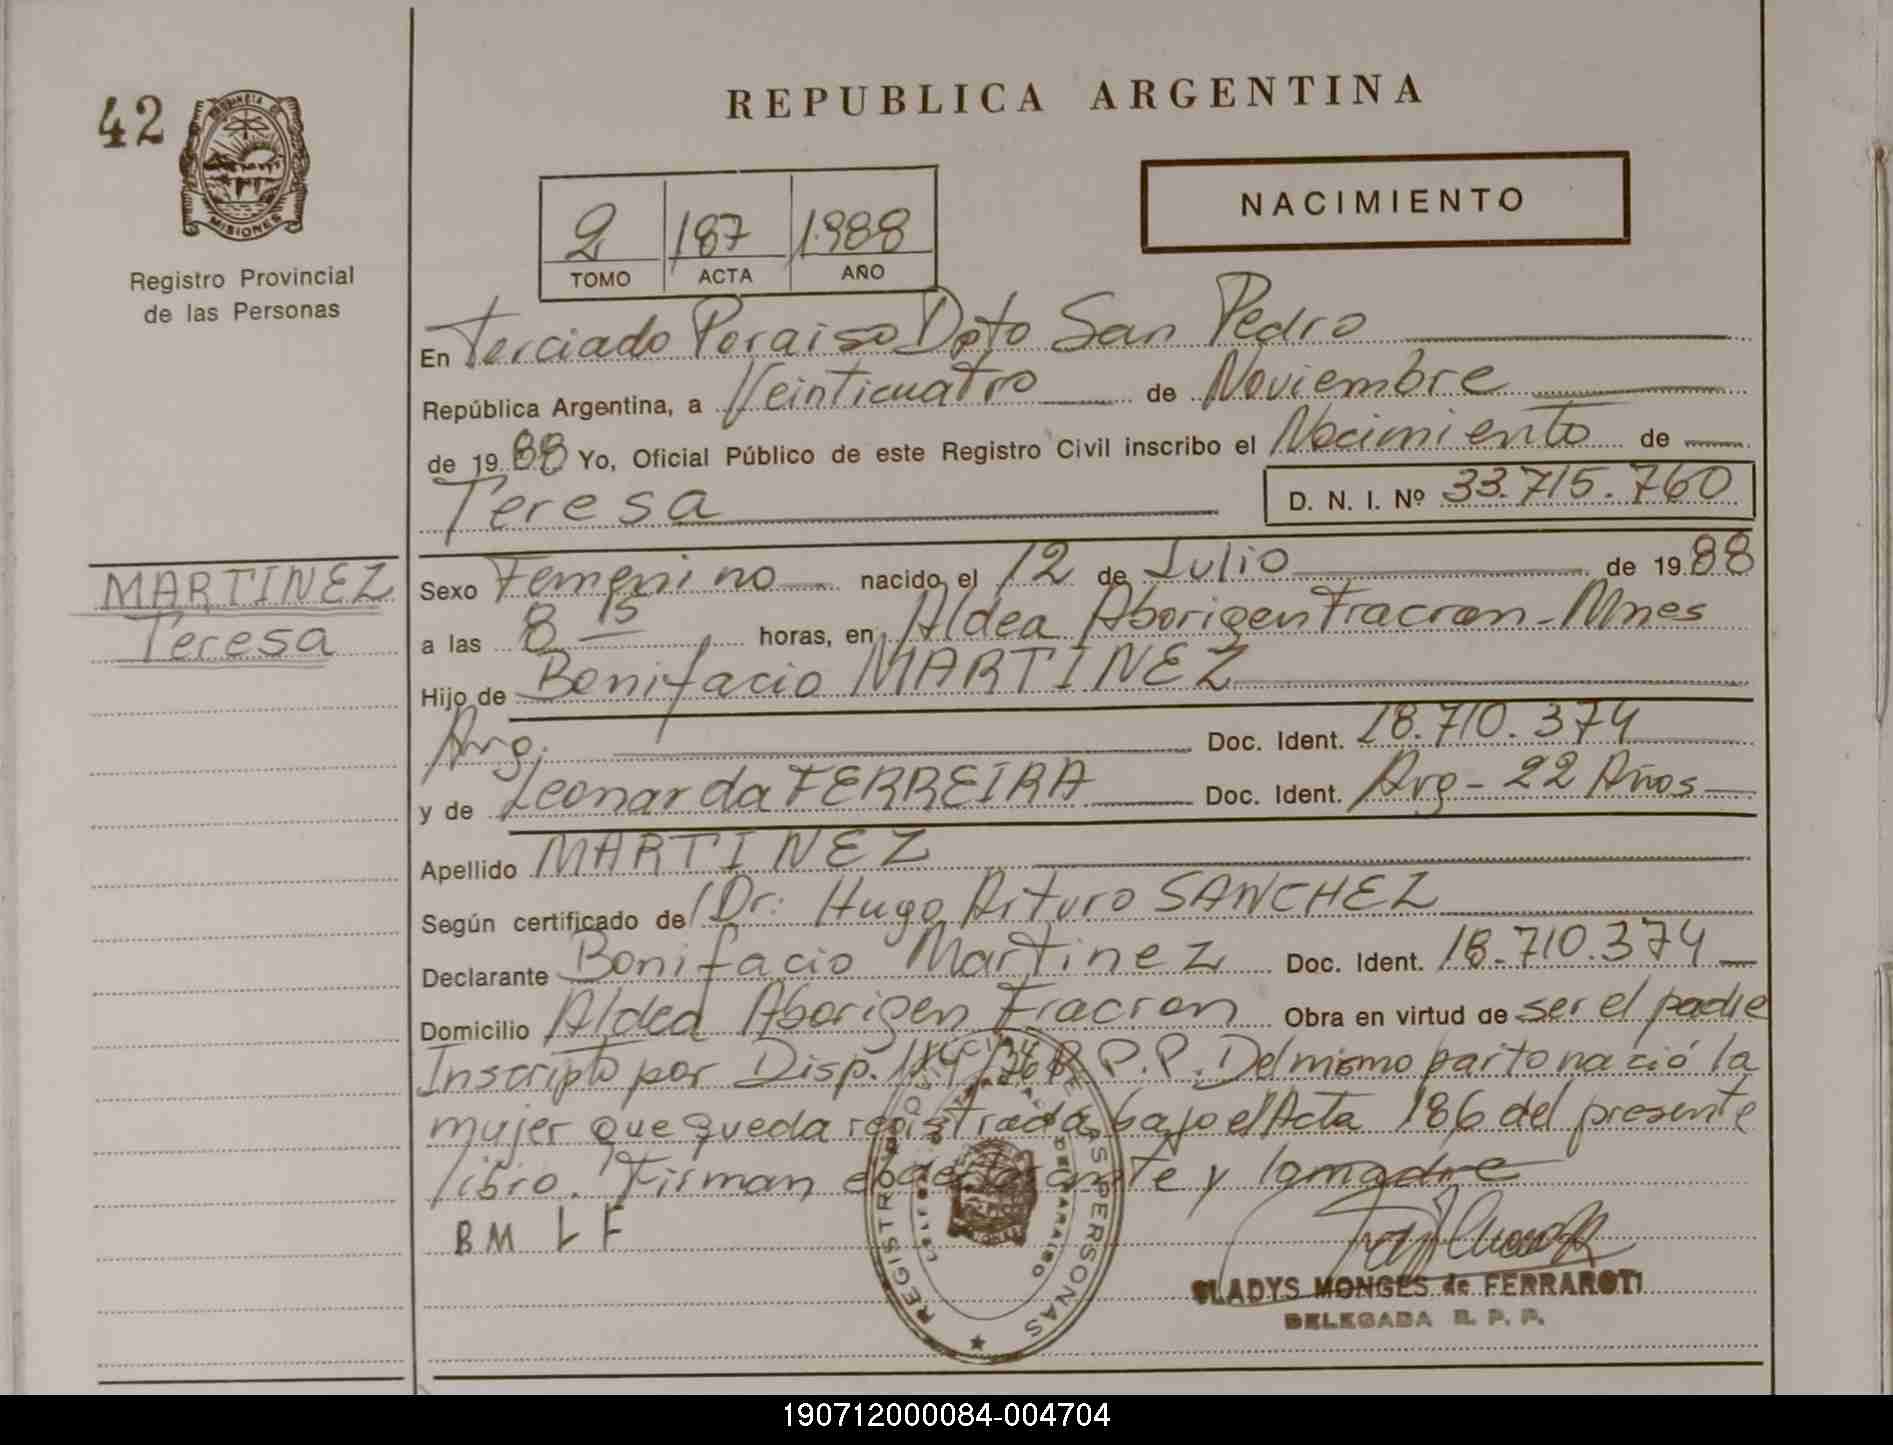 42
PROVINCIA DE
MISIONES
Registro Provincial
de las Personas
REPUBLICA ARGENTINA
NACIMIENTO
2 187 1988
TOMO ACTA AÑO
En Terciado Paraiso Dpto San Pedro
República Argentina, a Veinticuatro de Noviembre
de 1988 Yo, Oficial Público de este Registro Civil inscribo el Nacimiento de
Teresa D. N. I. Nº 33.715.760
MARTINEZ
Teresa
Sexo Femenino nacido el 12 de Julio de 1988
a las 8 15 horas, en Aldea Aborigen Fracran - Mnes
Hijo de Bonifacio MARTINEZ
Arg. Doc. Ident. 18.710.374
y de Leonarda FERREIRA Doc. Ident. Arg - 22 Años
Apellido MARTINEZ
Según certificado de Dr: Hugo Arturo SANCHEZ
Declarante Bonifacio Martinez Doc. Ident. 18.710.374
Domicilio Aldea Aborigen Fracran Obra en virtud de ser el padre
Inscripto por Disp. R.P.P. Del mismo parto nació la
mujer que queda registrada bajo el Acta 186 del presente
libro. Firman el declarante y la madre
BM LF
REGISTRO PERSONAS
GLADYS MONGES de FERRAROTI
DELEGADA R. P. P.
190712000084-004704